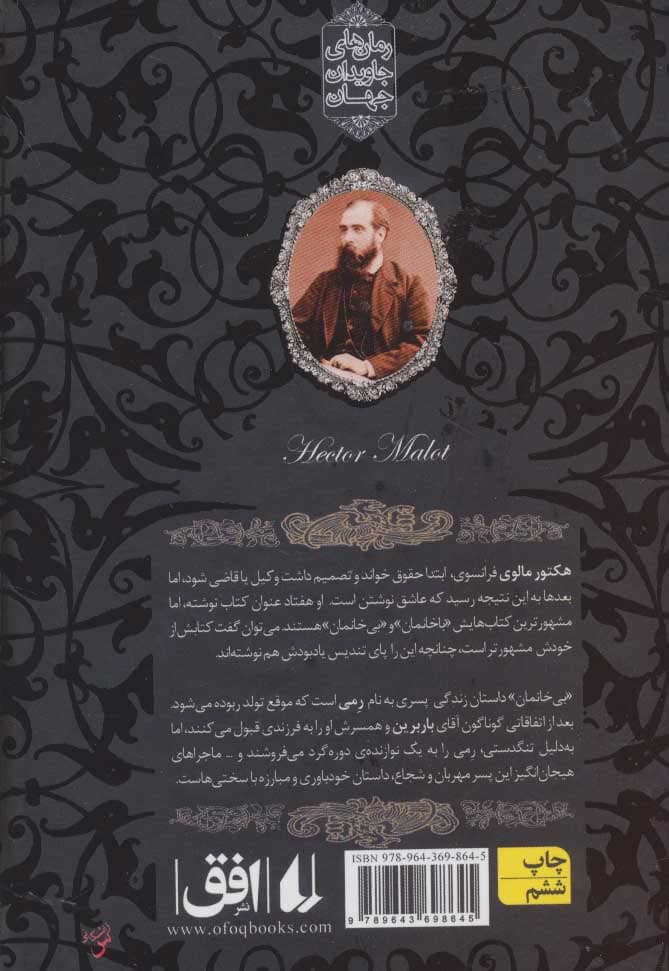 رمان‌های
جاویدان
جهان
Hector Malot
هکتور مالوی فرانسوی، ابتدا حقوق خواند و تصمیم داشت وکیل یا قاضی شود، اما
بعدها به این نتیجه رسید که عاشق نوشتن است. او هفتاد عنوان کتاب نوشته، اما
مشهورترین کتاب‌هایش «باخانمان» و «بی‌خانمان» هستند. می‌توان گفت کتابش از
خودش مشهورتر است، چنانچه این را پای تندیس یادبودش هم نوشته‌اند.
«بی‌خانمان» داستان زندگی پسری به نام رِمی است که موقع تولد ربوده می‌شود.
بعد از اتفاقاتی گوناگون آقای باربرین و همسرش او را به فرزندی قبول می‌کنند، اما
به‌دلیل تنگدستی، رمی را به یک نوازنده‌ی دوره‌گرد می‌فروشند و ... ماجراهای
هیجان‌انگیز این پسر مهربان و شجاع، داستان خودباوری و مبارزه با سختی‌هاست.
چاپ
ششم
ISBN 978-964-369-864-5
9 789643 698645
نشر افق
www.ofoqbooks.com